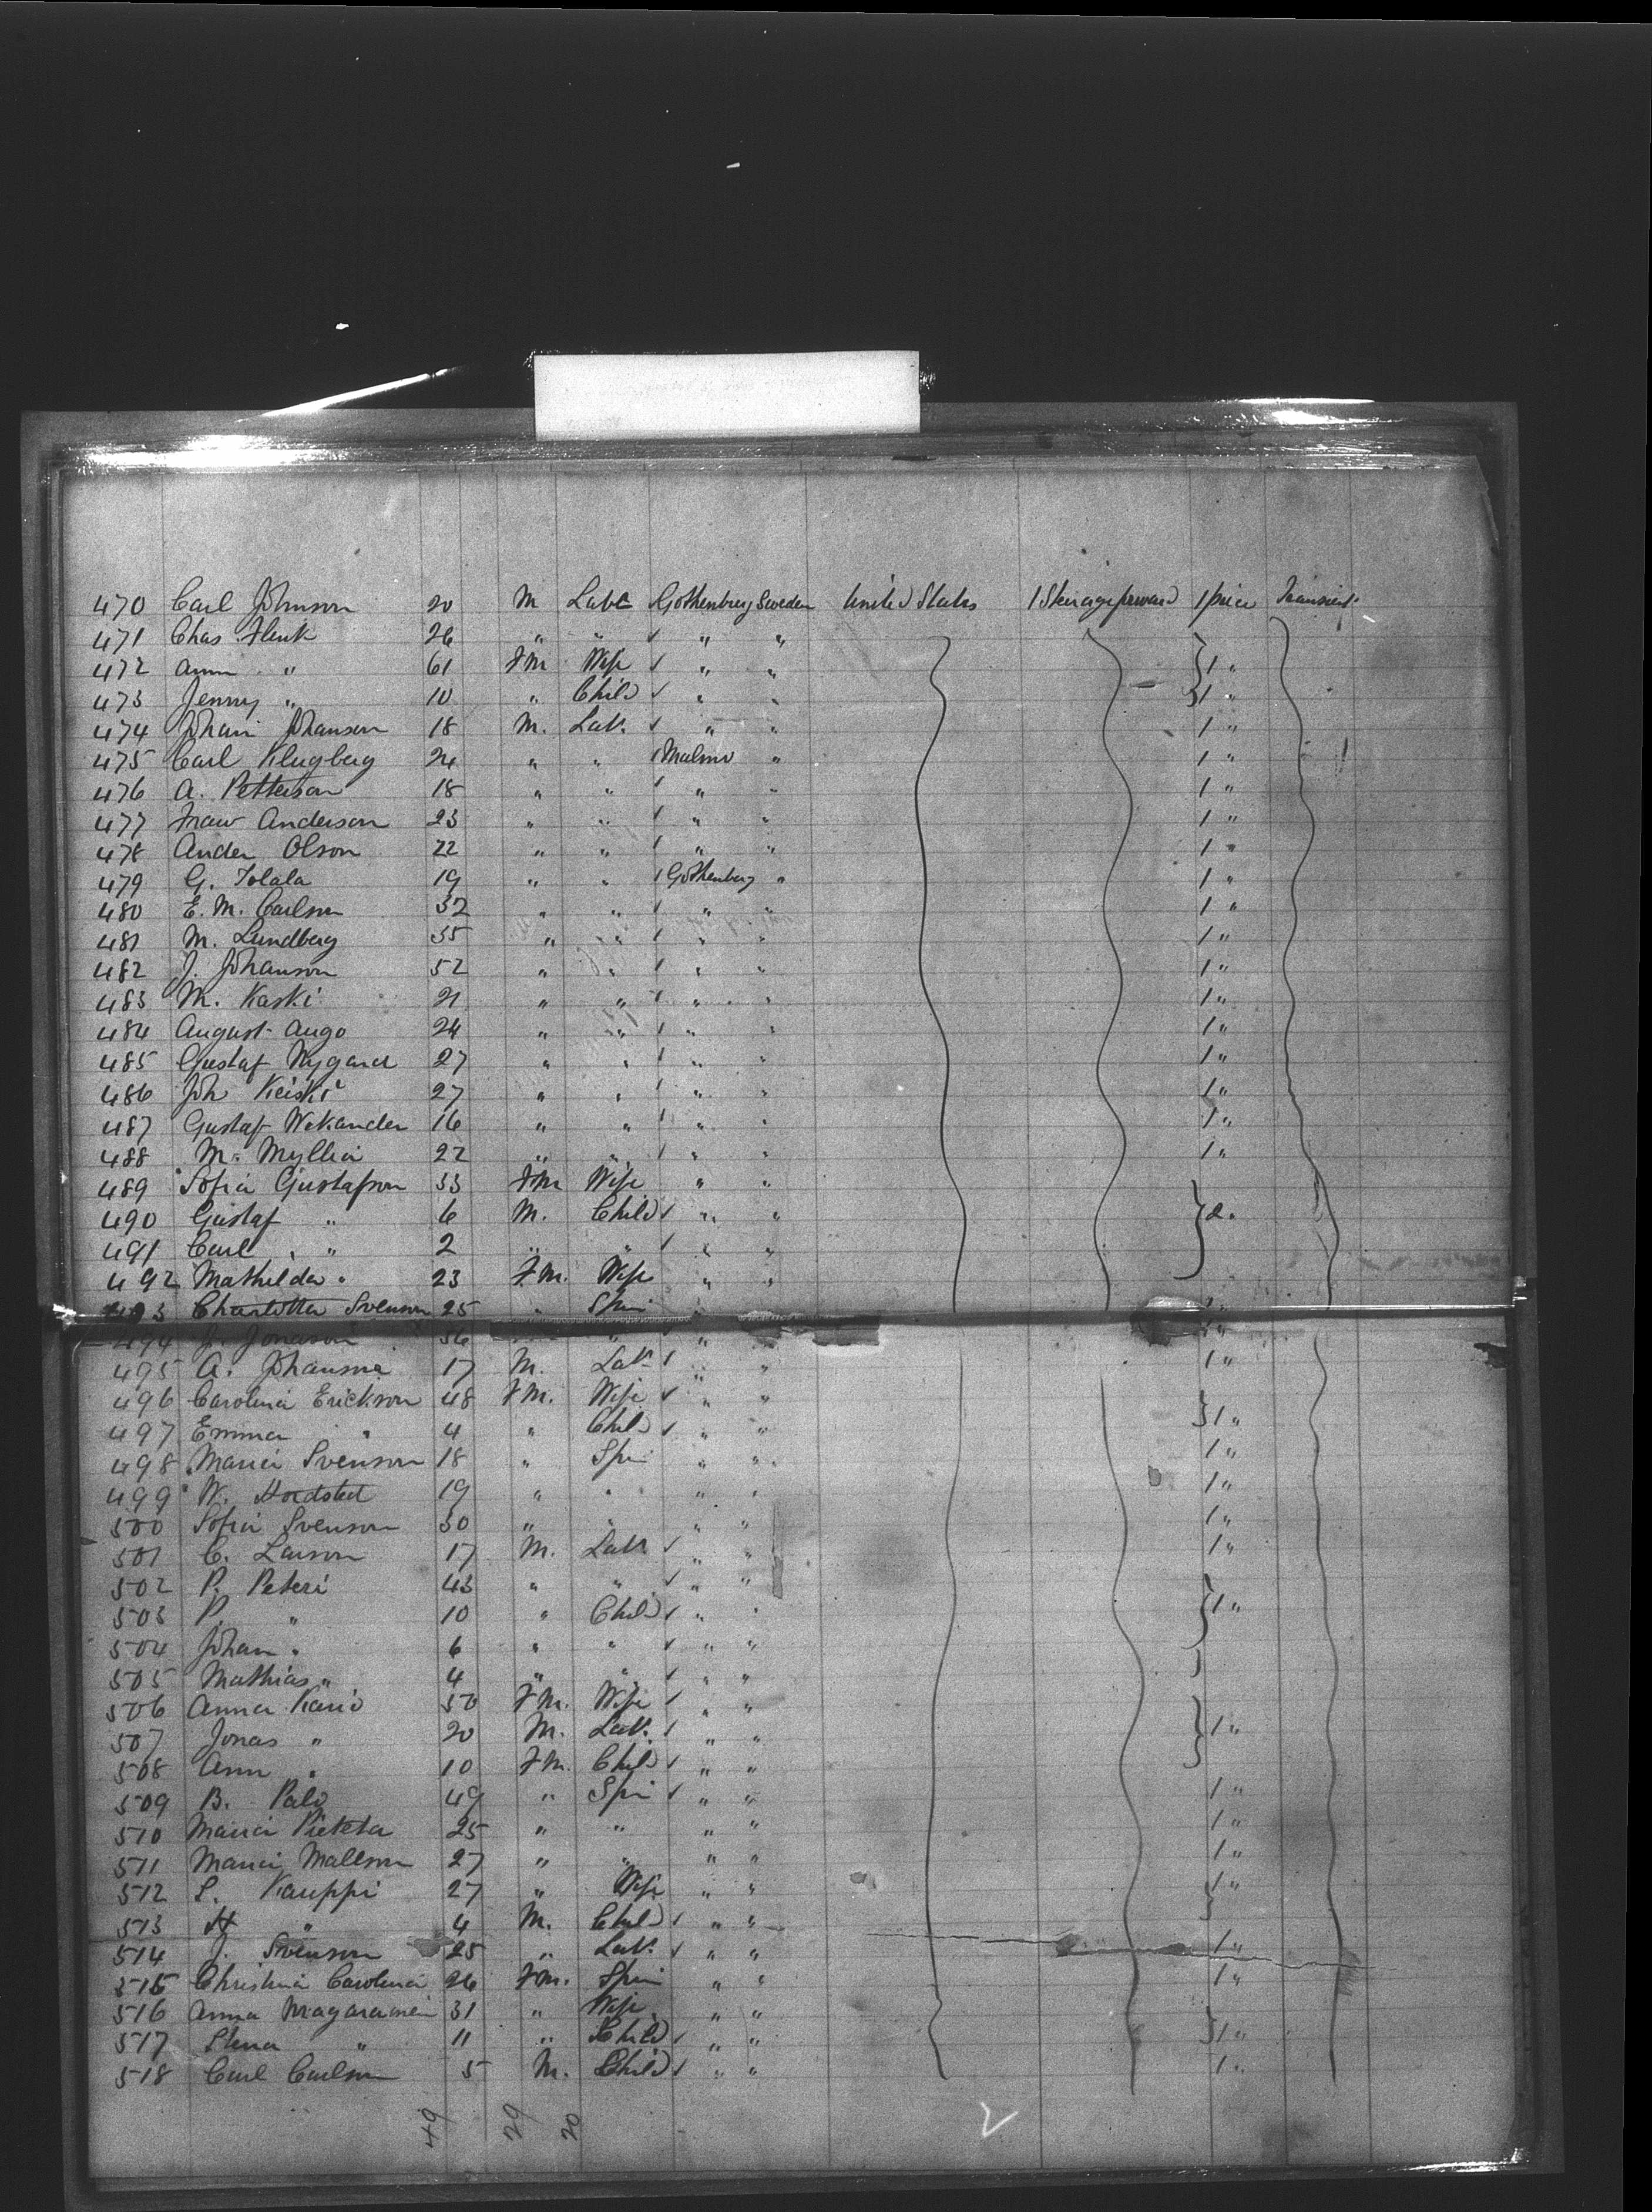 470 Carl Johnson 20 M Labr Gothenburg Sweden United States 1 Steerage forward 1 piece Transient
471 Chas. Flenk 26 " " ✓ " "
472 Ann " 61 FM Wife ✓ " " } 1 "
473 Jenny " 10 " Child ✓ " " } 1 "
474 Johan Johanson 18 M. Labr. ✓ " " 1 "
475 Carl Klugberg 24 " " ✓ Malmo " 1 "
476 A. Petterson 18 " " ✓ " " 1 "
477 Anderson 23 " " ✓ " " 1 "
478 Ander Olson 22 " " ✓ " " 1 "
479 G. Tolala 19 " " ✓ Gothenberg " 1 "
480 E. M. Carlson 32 " " ✓ " " 1 "
481 M. Lundberg 35 " " ✓ " " 1 "
482 J. Johanson 52 " " ✓ " " 1 "
483 M. Kaski 21 " " ✓ " " 1 "
484 August Augo 24 " " ✓ " " 1 "
485 Gustaf Nygard 27 " " " " 1 "
486 Joh Keiski 27 " " ✓ " " 1 "
487 Gustaf Wekander 16 " " ✓ " " 1 "
488 M. Myllia 22 " " ✓ " " 1 "
489 Sofia Gustafson 33 FM Wife " "
490 Gustaf " 6 M. Child ✓ " " } 2 "
491 Carl " 2 " " ✓ " "
492 Mathilda " 23 FM. Wife " "
493 Charlotta Svenson 25 " Spin "
494 J. Jonason 36 " "
495 A. 17 M. Labr ✓ " " 1 "
496 Carolina Erickson 48 FM. Wife ✓ " " } 1 "
497 Emma " 4 " Child ✓ " "
498 Maria Svenson 18 " Spin " " 1 "
499 W. Hordsted 19 " " " " 1 "
500 Sofia Svenson 30 " " " " 1 "
501 C. Larson 17 M. Labr ✓ " " 1 "
502 P. Peteri 43 " " ✓ " "
503 P. " 10 " Child ✓ " " } 1 "
504 Johan " 6 " " ✓ " "
505 Mathias " 4 " " ✓ " "
506 Anna Kario 50 FM. Wife ✓ " "
507 Jonas " 20 M. Labr. ✓ " " } 1 "
508 Ann " 10 FM. Child ✓ " "
509 B. Palo 49 " Spin ✓ " " 1 "
510 Maria 25 " " " " 1 "
511 Maria Mallson 27 " " " " 1 "
512 S. Kauppi 27 " Wife " " 1 "
513 H " 4 M. Child ✓ " "
514 J. Svenson 25 " Labr. ✓ " " 1 "
515 Christina Carolina 26 FM. Spin " " 1 "
516 Anna 31 " Wife " "
517 Stena " 11 " Child ✓ " " } 1 "
518 Carl Carlson 5 M. Child ✓ " " 1 "
49 29 20